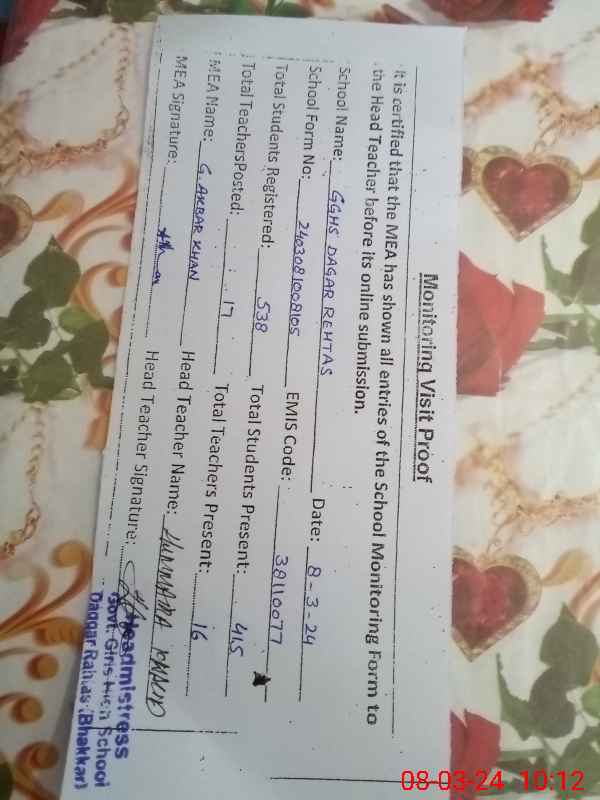 Monitoring Visit Proof
It is certified that the MEA has shown all entries of the School Monitoring Form to
the Head Teacher before its online submission.
School Name: GGHS DAGAR REHTAS Date: 8-3-24
School Form No: 2403081008105 EMIS Code: 38110077
Total Students Registered: 538 Total Students Present: 415
Total TeachersPosted: 17 Total Teachers Present: 16
MEA Name: G. AKBAR KHAN Head Teacher Name: KHALID
MEA Signature: Head Teacher Signature:
Headmistress
Govt. Girls High School
Daggar Rahtas (Bhakkar)
08-03-24 10:12